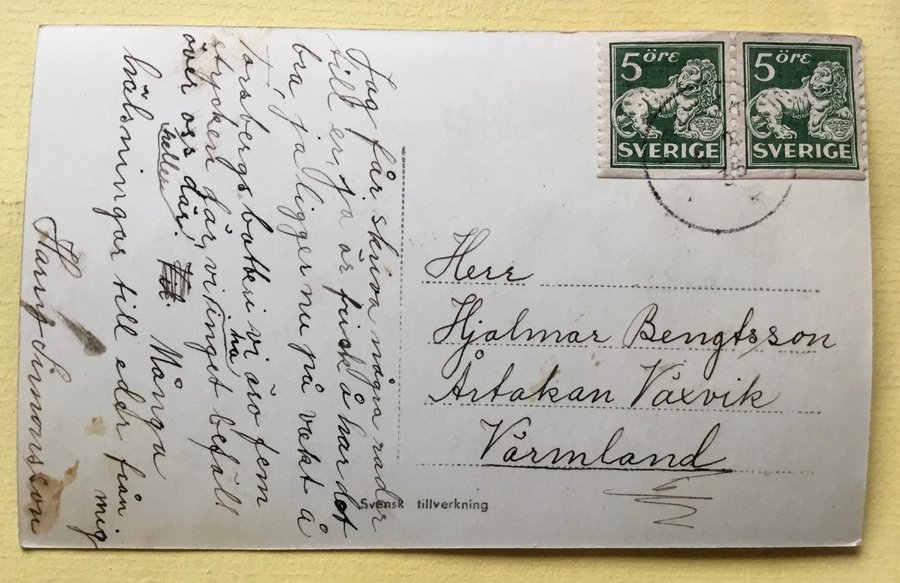 Jag får skriva några rader
till er, ja är frisk å har det
bra, ja ligger nu på vakt å
Torsbergs batteri vi äro fem
stycken här, vi ha inget befäll
över oss där heller. Många
hälsningar till eder från
mig
Harry Simonsson
5 öre
SVERIGE
5 öre
SVERIGE
Herr
Hjalmar Bengtsson
Årtakan Växvik
Värmland
Svensk tillverkning